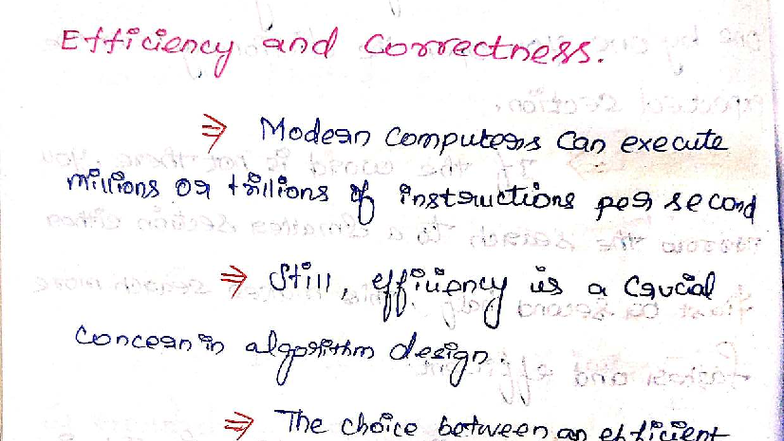 Efficiency and Correctness.
⇒ Modern Computers Can execute
millions or trillions of instructions per second
⇒ Still, efficiency is a Crucial
Concern in algorithm design.
⇒ The choice between an efficient